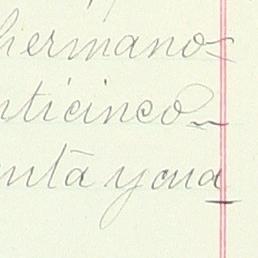 hermano-
nticinco-
enta y cua